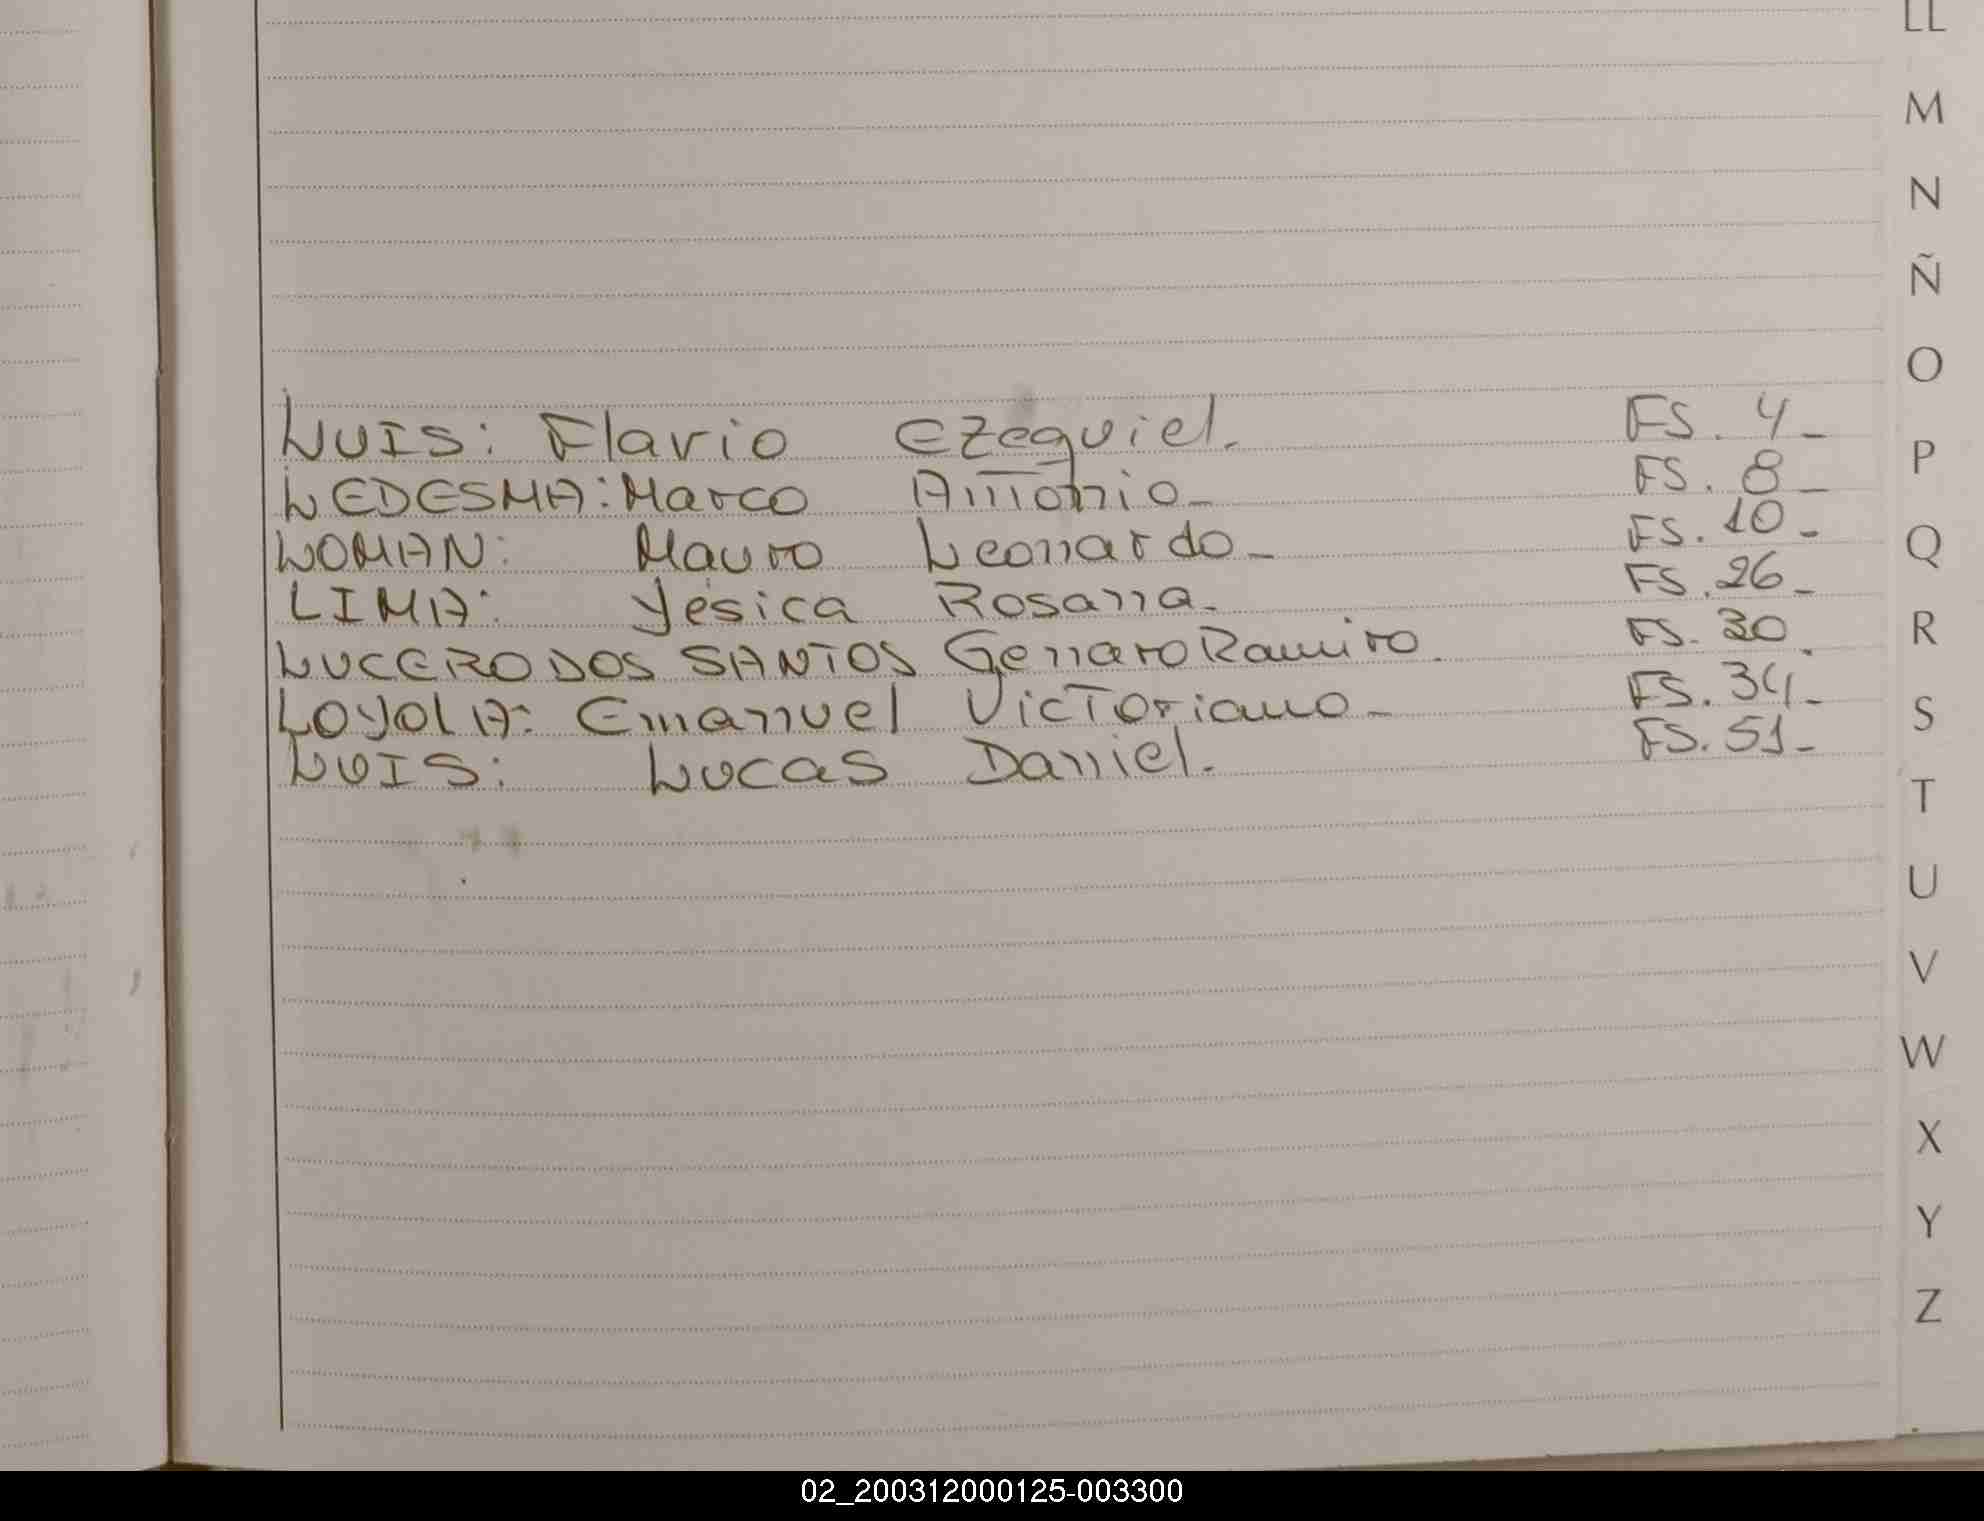 LL
M
N
Ñ
O
P
Q
R
S
T
U
V
W
X
Y
Z
LUIS: Flavio Ezequiel. FS. 4-
LEDESMA: Marco Antonio- FS. 8-
LOMAN: Mauro Leonardo- FS. 10-
LIMA: Yésica Rosana. FS. 26-
LUCERO DOS SANTOS Genaro Ramiro. FS. 30.
LOYOLA: Emanuel Victoriano- FS. 34-
LUIS: Lucas Daniel. FS. 51-
02_200312000125-003300